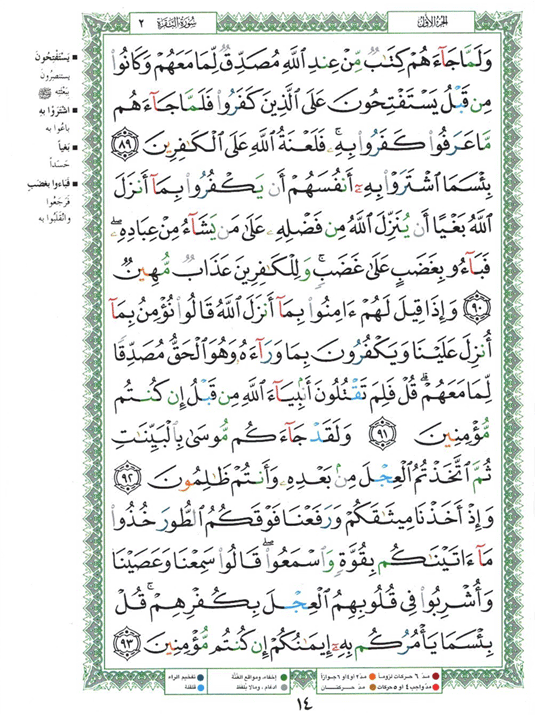 الجزء الأول
سُورَةُ البَقَرَة ٢
وَلَمَّا جَآءَهُمْ كِتَٰبٌ مِّنْ عِندِ ٱللَّهِ مُصَدِّقٌ لِّمَا مَعَهُمْ وَكَانُوا۟
مِن قَبْلُ يَسْتَفْتِحُونَ عَلَى ٱلَّذِينَ كَفَرُوا۟ فَلَمَّا جَآءَهُم
مَّا عَرَفُوا۟ كَفَرُوا۟ بِهِۦ ۚ فَلَعْنَةُ ٱللَّهِ عَلَى ٱلْكَٰفِرِينَ ٨٩
بِئْسَمَا ٱشْتَرَوْا۟ بِهِۦٓ أَنفُسَهُمْ أَن يَكْفُرُوا۟ بِمَآ أَنزَلَ
ٱللَّهُ بَغْيًا أَن يُنَزِّلَ ٱللَّهُ مِن فَضْلِهِۦ عَلَىٰ مَن يَشَآءُ مِنْ عِبَادِهِۦ ۖ
فَبَآءُو بِغَضَبٍ عَلَىٰ غَضَبٍ ۚ وَلِلْكَٰفِرِينَ عَذَابٌ مُّهِينٌ
٩٠ وَإِذَا قِيلَ لَهُمْ ءَامِنُوا۟ بِمَآ أَنزَلَ ٱللَّهُ قَالُوا۟ نُؤْمِنُ بِمَآ
أُنزِلَ عَلَيْنَا وَيَكْفُرُونَ بِمَا وَرَآءَهُۥ وَهُوَ ٱلْحَقُّ مُصَدِّقًا
لِّمَا مَعَهُمْ ۗ قُلْ فَلِمَ تَقْتُلُونَ أَنۢبِيَآءَ ٱللَّهِ مِن قَبْلُ إِن كُنتُم
مُّؤْمِنِينَ ٩١ وَلَقَدْ جَآءَكُم مُّوسَىٰ بِٱلْبَيِّنَٰتِ
ثُمَّ ٱتَّخَذْتُمُ ٱلْعِجْلَ مِنۢ بَعْدِهِۦ وَأَنتُمْ ظَٰلِمُونَ ٩٢
وَإِذْ أَخَذْنَا مِيثَٰقَكُمْ وَرَفَعْنَا فَوْقَكُمُ ٱلطُّورَ خُذُوا۟
مَآ ءَاتَيْنَٰكُم بِقُوَّةٍ وَٱسْمَعُوا۟ ۖ قَالُوا۟ سَمِعْنَا وَعَصَيْنَا
وَأُشْرِبُوا۟ فِى قُلُوبِهِمُ ٱلْعِجْلَ بِكُفْرِهِمْ ۚ قُلْ
بِئْسَمَا يَأْمُرُكُم بِهِۦٓ إِيمَٰنُكُمْ إِن كُنتُم مُّؤْمِنِينَ ٩٣
يَسْتَفْتِحُونَ
يستنصرُونَ
ببعْثَتِه ﷺ
اشْتَرَوْا بِهِ
باعُوا به
بَغْياً
حَسَداً
فَبَاءوا بِغَضَبٍ
فَرَجَعُوا
وانْقَلَبُوا به
مدّ ٦ حركات لزوماً
مدّ ٢ أو ٤ أو ٦ جوازاً
إخفاء، ومواقع الغُنَّة
تفخيم الراء
مدّ واجب ٤ أو ٥ حركات
مدّ حركتان
ادغام، وما لا يُلفَظ
قلقلة
١٤